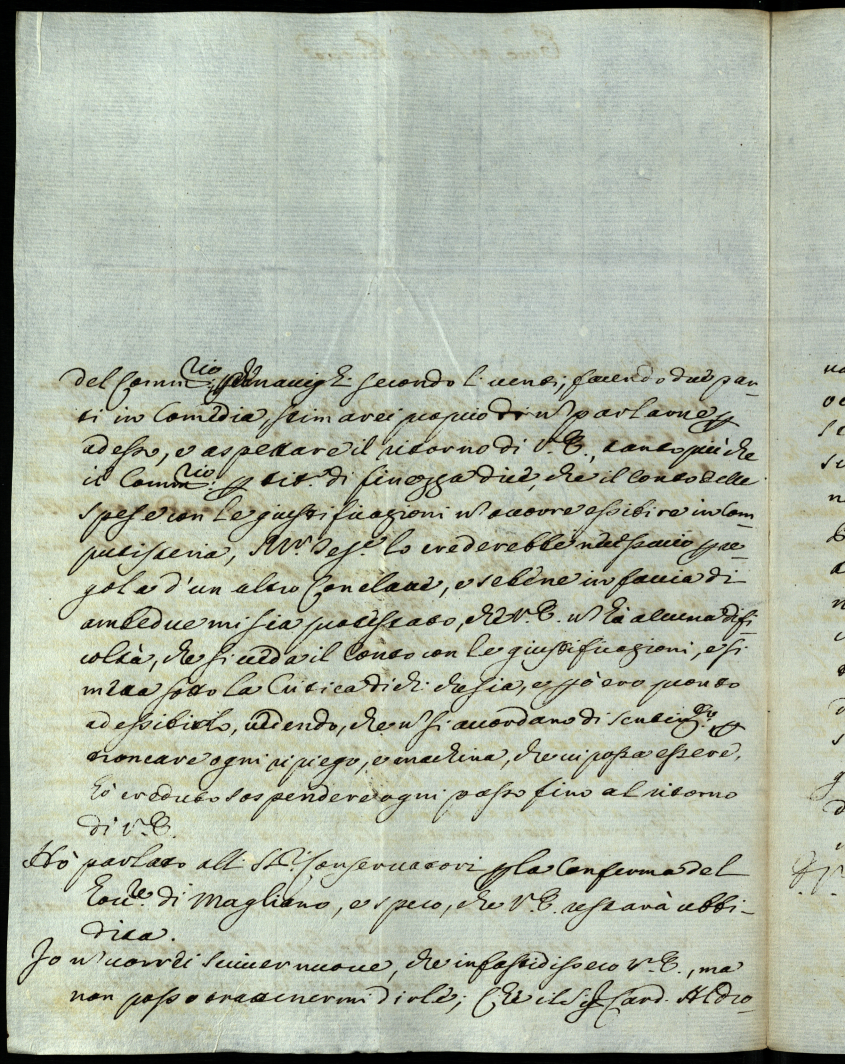 del Comm.rio, che navighi secondo li venti, facendo due par-
ti in Comedia, stimarei proprio di nō parlarne p
adesso, e aspettare il ritorno di V.E., tanto più che
il Comm.rio p tit.o di finezza dice, che il conto delle
spese con le giustificazioni nō occorre essibire in Com
putisteria, Mr. Seg.o lo crederebbe necessario p re-
gola d'un altro Conclave, e se bene in faccia di
ambedue mi sia protestato, che V.E. nō hà alcuna difi
coltà, che si veda il Conto con le giustificazioni, e si
metta sotto la Critica di chi che sia, e p̄ò ero pronto
ad essibirlo, vedendo, che nō si accordano di sentim.to, p
troncare ogni ripiego, e machina, che vi possa essere,
hò creduto sospendere ogni passo fino al ritorno
di V.E.
Hò parlato alli SS.ri Conservatori p la Conferma del
di Magliano, e spero, che V.E. restarà ubbi-
dita.
Io nō vorrei scriver nuove, che infastidissero V.E., ma
non posso trattenermi dirle; Che il Sig. Card. Aldro-